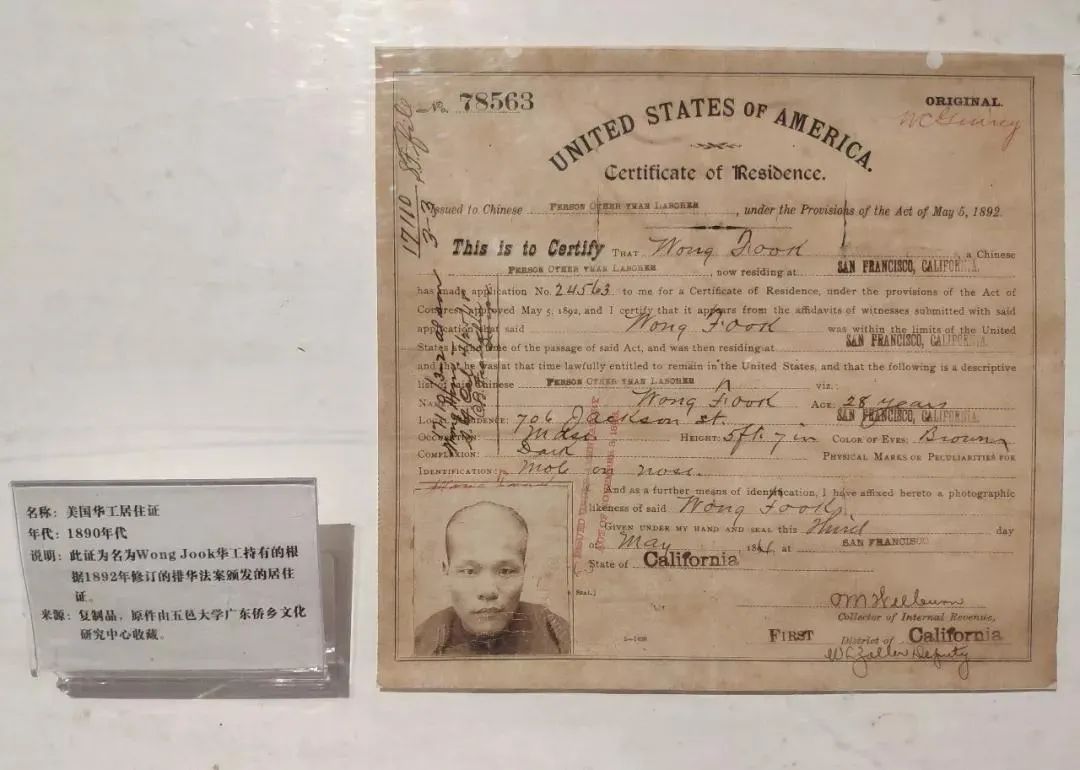 名称：美国华工居住证
年代：1890年代
说明：此证为名为Wong Jook华工持有的根
据1892年修订的排华法案颁发的居住
证。
来源：复制品，原件由五邑大学广东侨乡文化
研究中心收藏。
No. 78563
ORIGINAL.
UNITED STATES OF AMERICA.
Certificate of Residence.
Issued to Chinese PERSON OTHER THAN LABORER, under the Provisions of the Act of May 5, 1892.
This is to Certify THAT Wong Fook, a Chinese
PERSON OTHER THAN LABORER, now residing at SAN FRANCISCO, CALIFORNIA.
has made application No. 24563 to me for a Certificate of Residence, under the provisions of the Act of
Congress approved May 5, 1892, and I certify that it appears from the affidavits of witnesses submitted with said
application that said Wong Fook was within the limits of the United
States at the time of the passage of said Act, and was then residing at SAN FRANCISCO, CALIFORNIA.
and that he was at that time lawfully entitled to remain in the United States, and that the following is a descriptive
list of said Chinese PERSON OTHER THAN LABORER viz.:
NAME: Wong Fook AGE: 28 years
LOCAL RESIDENCE: 706 Jackson st. SAN FRANCISCO, CALIFORNIA.
OCCUPATION: Mdse HEIGHT: 5ft. 7 in COLOR OF EYES: Brown
COMPLEXION: Dark PHYSICAL MARKS OR PECULIARITIES FOR
IDENTIFICATION: Mole on nose.
And as a further means of identification, I have affixed hereto a photographic
likeness of said Wong Fook
GIVEN UNDER MY HAND AND SEAL this Third day
of May 189, at SAN FRANCISCO
State of California
SEAL.)
OM Welburn
Collector of Internal Revenue,
FIRST District of California
Deputy
17110
3-3